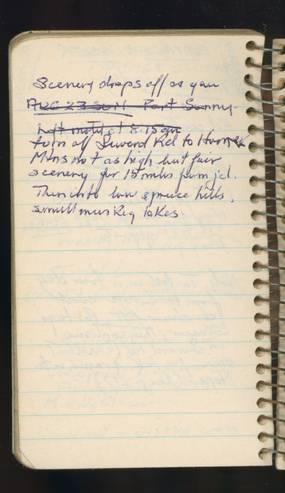 Scenery drops off as you
AUG 23 SUN Part Sunny
Left motel at 8:15am
turn off Seward Rd to Homer
Mtns not as high but fair
scenery for 15 miles from jct.
Then into low spruce hills,
small muskeg lakes.